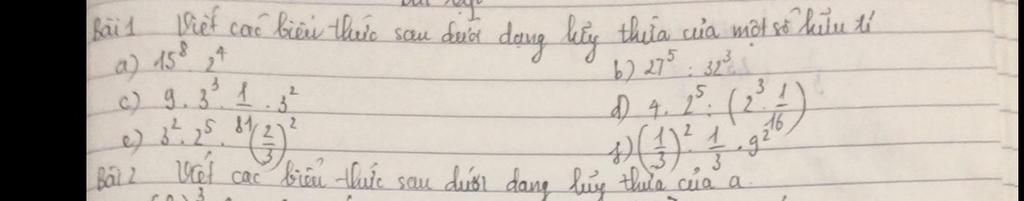 Bài 1 Viết các biểu thức sau dưới dạng lũy thừa của một số hữu tỉ
a) 15⁸ . 2⁴ b) 27⁵ : 32³
c) 9 . 3³ . 1/81 . 3² d) 4 . 2⁵ : (2³ . 1/16)
e) 3² . 2⁵ . (2/3)² f) (1/3)² . 1/3 . 9²
Bài 2 Viết các biểu thức sau dưới dạng lũy thừa của a.